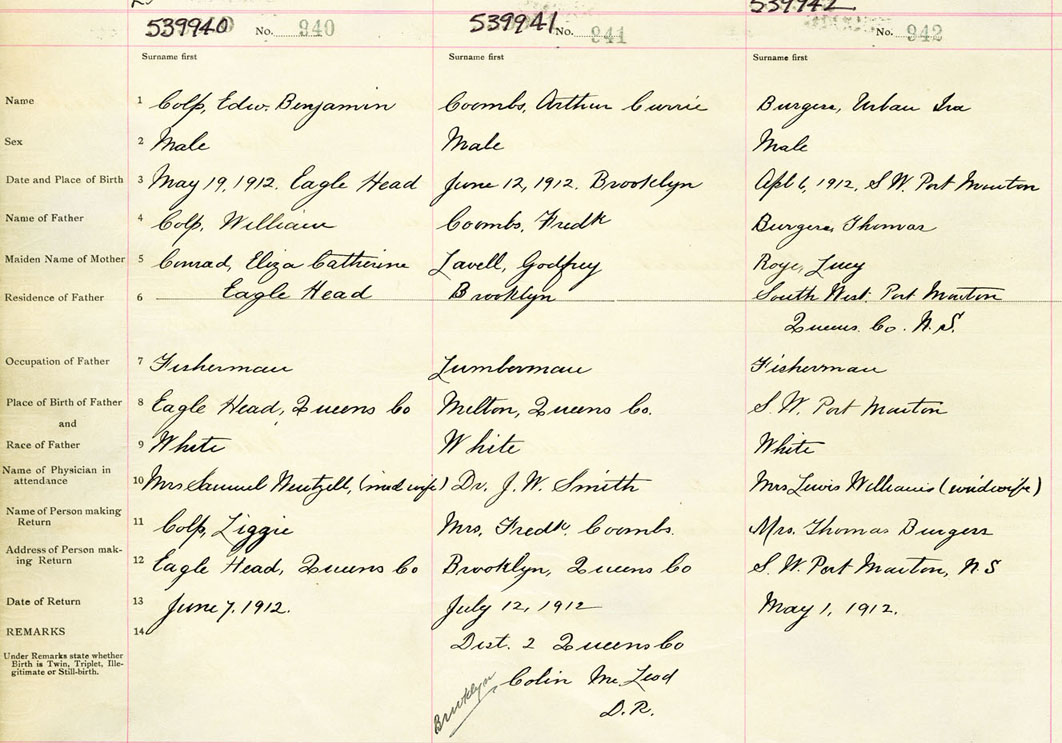 539940 No. 940 539941 No. 941 539942 No. 942
Surname first Surname first Surname first
Name 1 Colp, Edw. Benjamin Coombs, Arthur Currie Burgess, Urban Ira
Sex 2 Male Male Male
Date and Place of Birth 3 May 19, 1912. Eagle Head June 12, 1912. Brooklyn Apl 6, 1912, S.W. Port Mouton
Name of Father 4 Colp, William Coombs, Fredk Burgess, Thomas
Maiden Name of Mother 5 Conrad, Eliza Catherine Lavell, Godfrey Lucy
Residence of Father 6 Eagle Head Brooklyn South West Port Mouton
Queens Co. N.S.
Occupation of Father 7 Fisherman Lumberman Fisherman
Place of Birth of Father 8 Eagle Head, Queens Co Milton, Queens Co. S. W. Port Mouton
and
Race of Father 9 White White White
Name of Physician in
attendance 10 Mrs Samuel Wentzell, (midwife) Dr. J. W. Smith Mrs Lewis Williams (midwife)
Name of Person making
Return 11 Colp, Lizzie Mrs. Fredk. Coombs. Mrs. Thomas Burgess
Address of Person mak-
ing Return 12 Eagle Head, Queens Co Brooklyn, Queens Co S. W. Port Mouton, N S
Date of Return 13 June 7, 1912. July 12, 1912 May 1, 1912.
REMARKS 14
Dist. 2 Queens Co
Under Remarks state whether
Birth is Twin, Triplet, Ille-
gitimate or Still-birth.
Colin McLeod
Brooklyn
D.R.